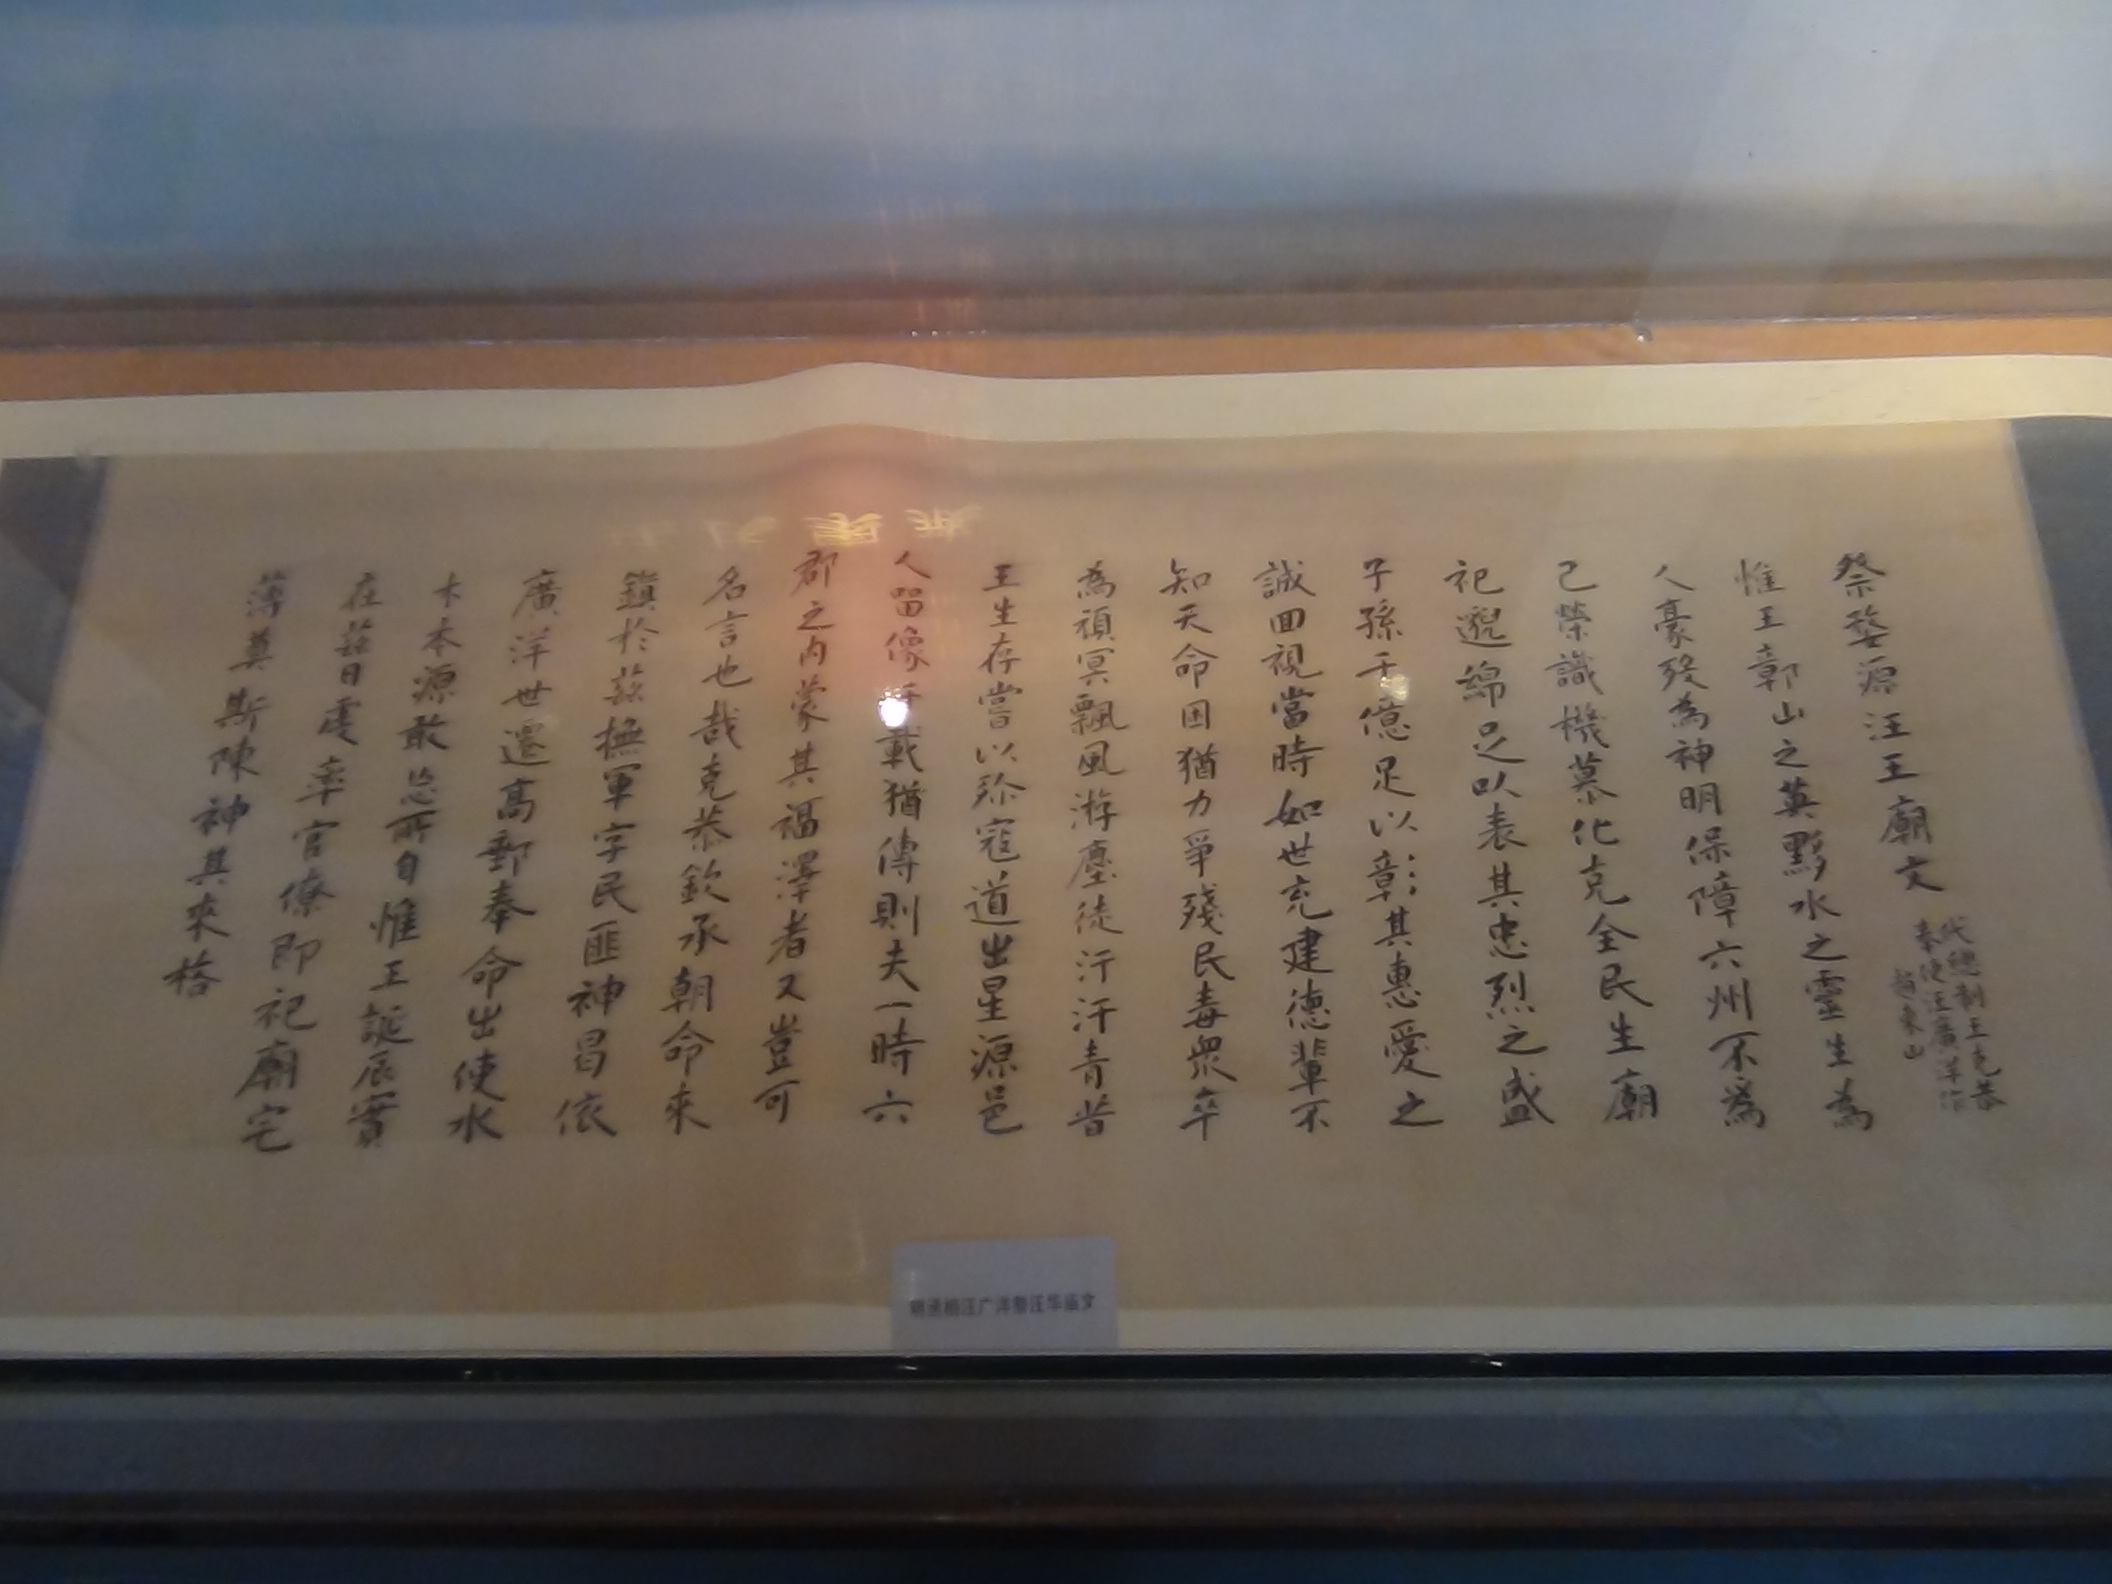 祭婺源汪王廟文
代總制王克恭
奉使汪廣洋作
趙東山
惟王鄣山之英黟水之靈生為
人豪歿為神明保障六州不為
己榮識機慕化克全民生廟
祀邈綿足以表其忠烈之盛
子孫千億足以彰:其惠愛之
誠回視當時如世充建德輩不
知天命固猶力爭殘民毒眾卒
為頑冥飄風游塵徒汙汗青昔
王生存嘗以殄寇道出星源邑
人留像千載猶傳則夫一時六
郡之內蒙其福澤者又豈可
名言也哉克恭欽承朝命來
鎮於茲撫軍字民匪神曷依
廣洋世遷高郵奉命出使水
木本源敢忘所自惟王誕辰實
在茲日虔率官僚即祀廟宅
薄奠斯陳神其來格
明丞相汪广洋祭汪华庙文